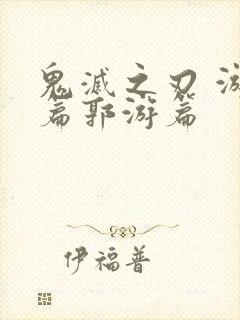 鬼滅之刃 游
篇郭游篇
伊福普